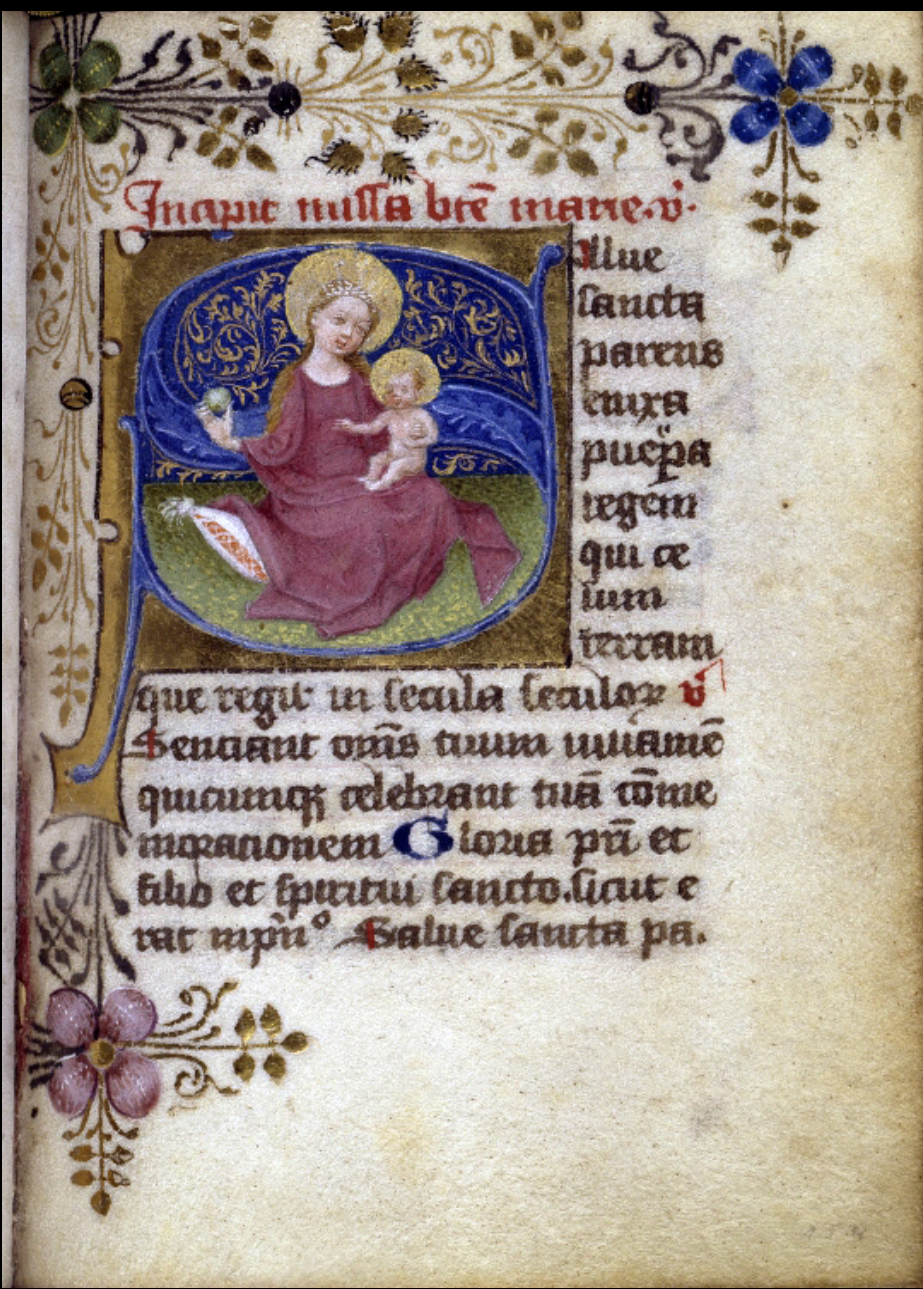 Incipit missa btē marie. v̄.
Salue
sancta
parens
enixa
puerpa
regem
qui ce
lum
terram
que regit in secula seculoꝝ v̄
Senciant om̄s tuum iuuamē
quicumqꝫ celebrant tuā cōme
moracionem Gloria pr̄i et
filio et spiritui sancto. sicut e
rat in pn̄º Salue sancta pa.